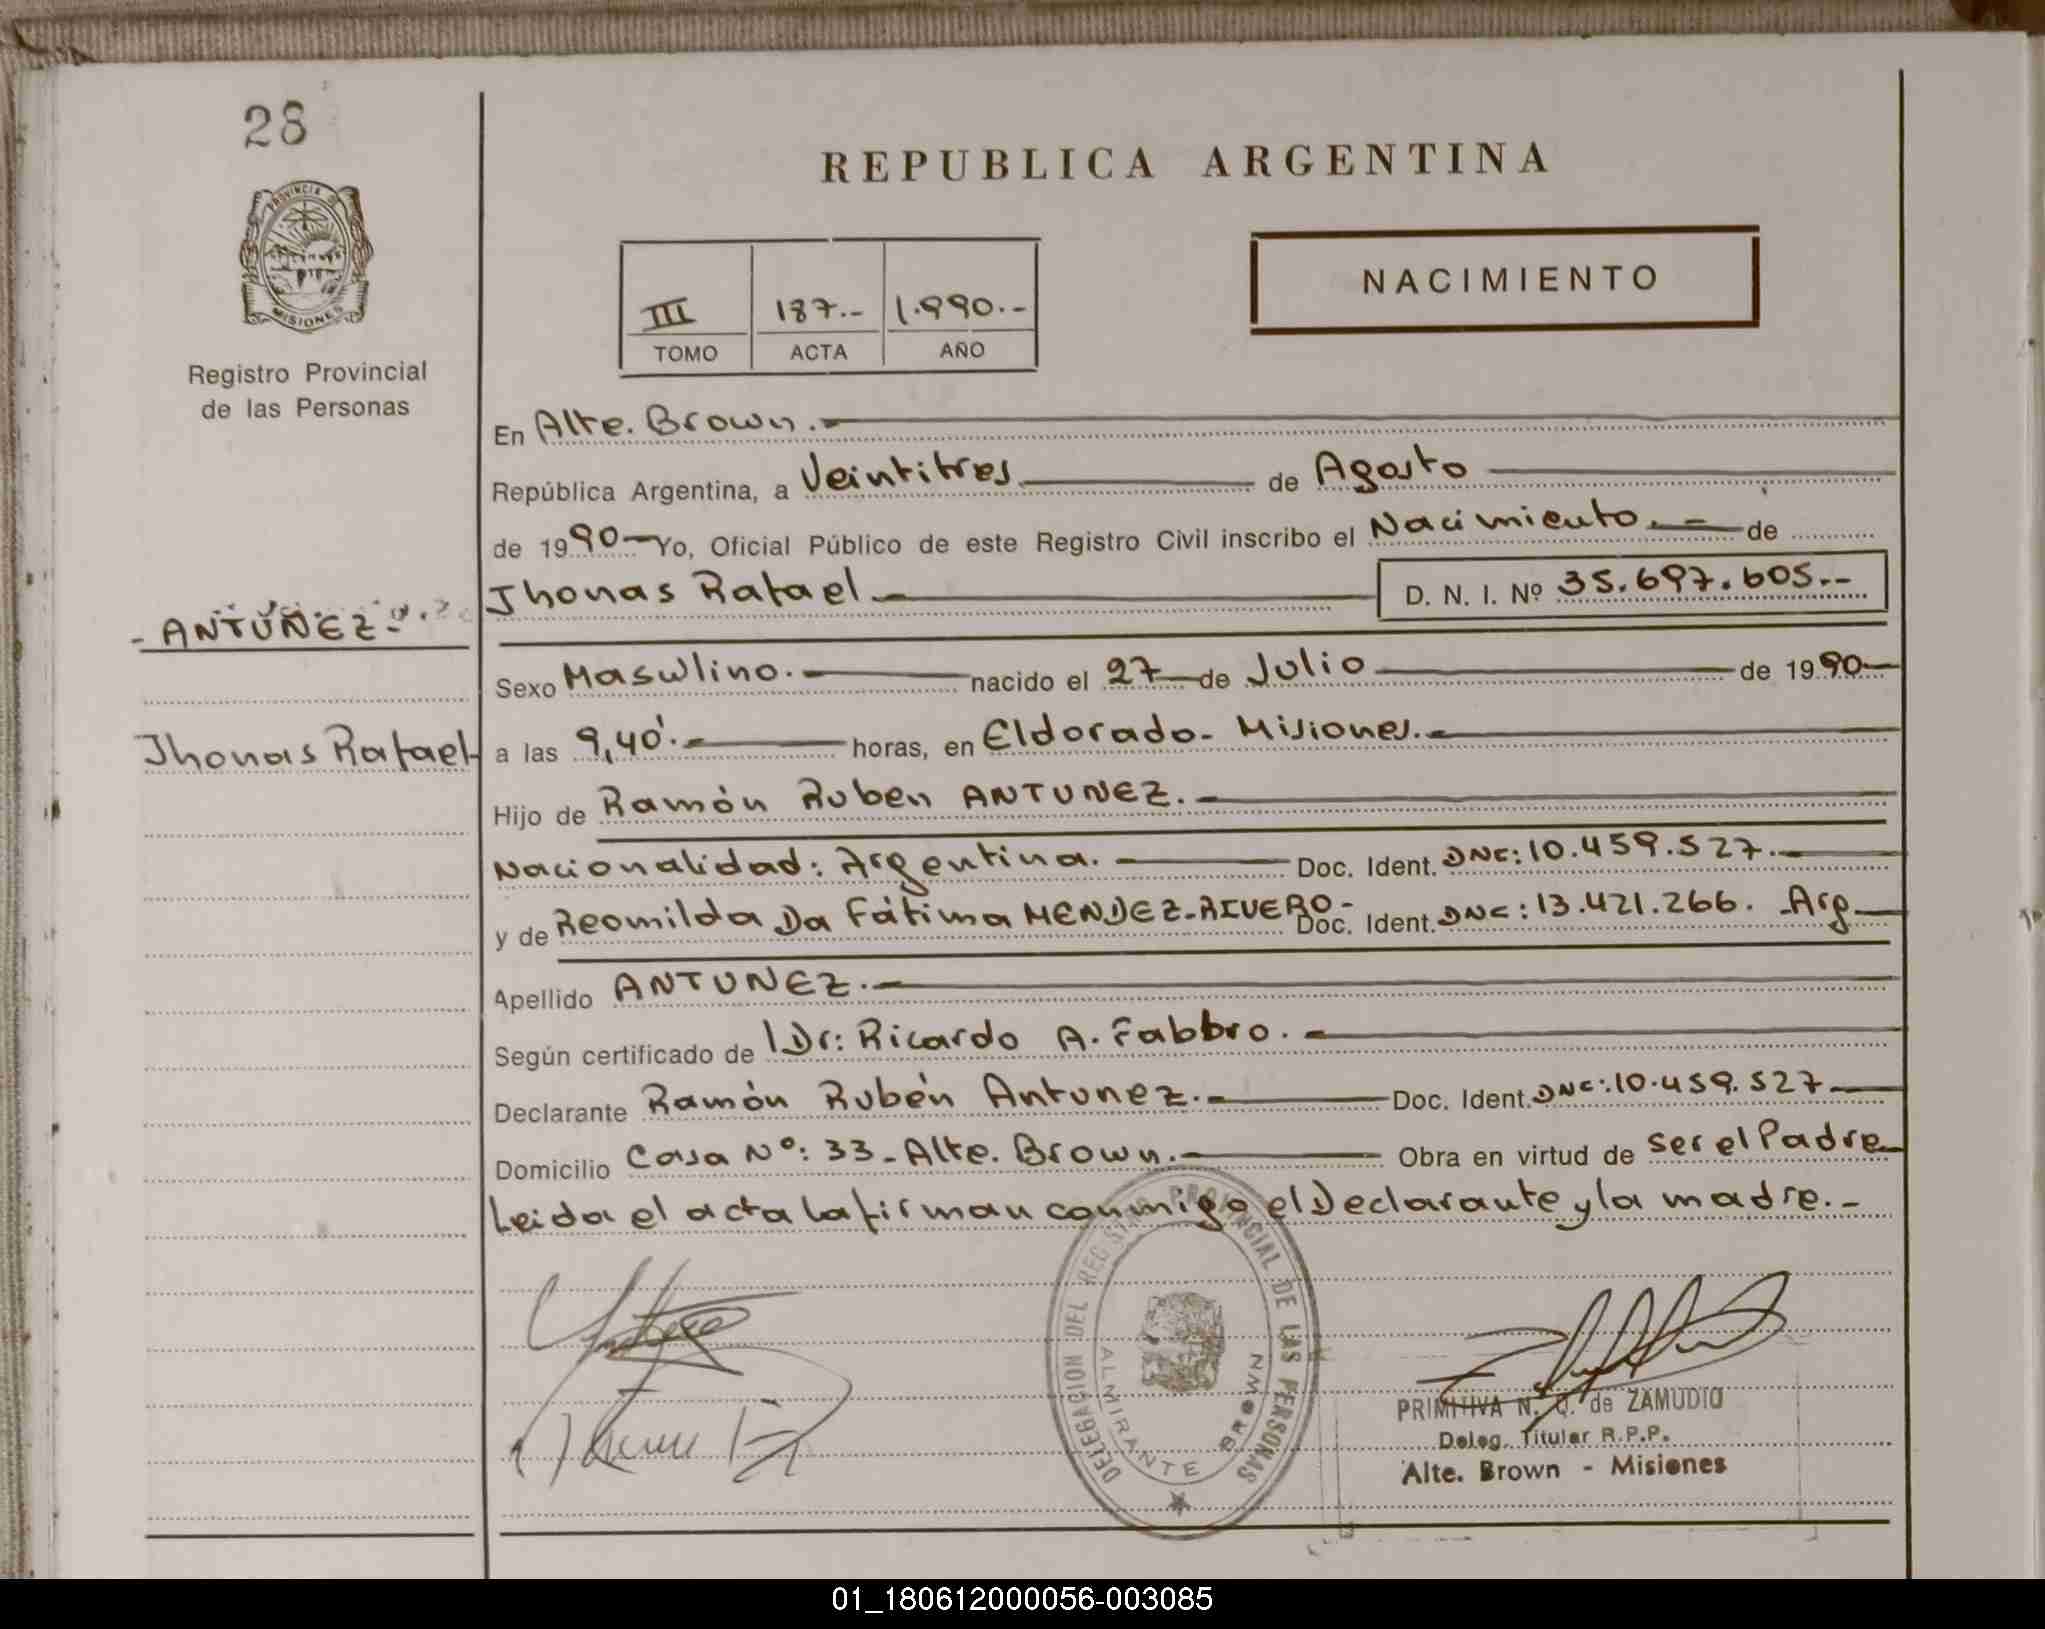 28
PROVINCIA DE
MISIONES
Registro Provincial
de las Personas
REPUBLICA ARGENTINA
III 187.- 1.990.-
TOMO ACTA AÑO
NACIMIENTO
En Alte. Brown.-
República Argentina, a Veintitres de Agosto
de 19 90- Yo, Oficial Público de este Registro Civil inscribo el Nacimiento.- de
Jhonas Rafael.- D. N. I. Nº 35.697.605.--
- ANTUÑEZ-
Sexo Masculino.- nacido el 27 de Julio de 19 90-
Jhonas Rafael- a las 9,40'.- horas, en Eldorado- Misiones.-
Hijo de Ramón Ruben ANTUNEZ.-
Nacionalidad: Argentina.- Doc. Ident. DNI: 10.459.527.-
y de Reomilda Da Fátima MENDEZ-RIVERO- Doc. Ident. DNI: 13.421.266. -Arg-
Apellido ANTUNEZ.-
Según certificado de Dr: Ricardo A. Fabbro.-
Declarante Ramón Rubén Antunez.- Doc. Ident. DNI: 10.459.527-
Domicilio Casa Nº: 33-Alte. Brown.- Obra en virtud de ser el Padre-
Leida el acta la firman conmigo el Declarante y la madre.-
DELEGACION DEL REGISTRO PROVINCIAL DE LAS PERSONAS
ALMIRANTE BROWN
PRIMITIVA N. Q. de ZAMUDIO
Deleg. Titular R.P.P.
Alte. Brown - Misiones
01_180612000056-003085